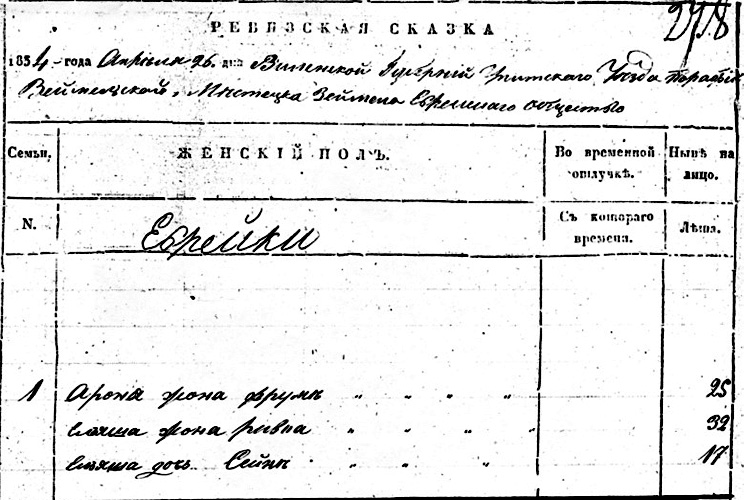 278
РЕВИЗСКАЯ СКАЗКА
1834 года Апреля 26 дня Виленской Губерніи Упитскаго Уѣзда Парафіи
Веймельской, Мистечка Веймела Еврейскаго общества
Семьи.
ЖЕНСКІЙ ПОЛЪ.
Во временной отлучкѣ.
Нынѣ на лицо.
N.
Еврейки
Съ котораго времени.
Лѣта.
1 Арона жона Фрумъ " " " " 25
жона Ривка " " " " 32
дочь " " " 17